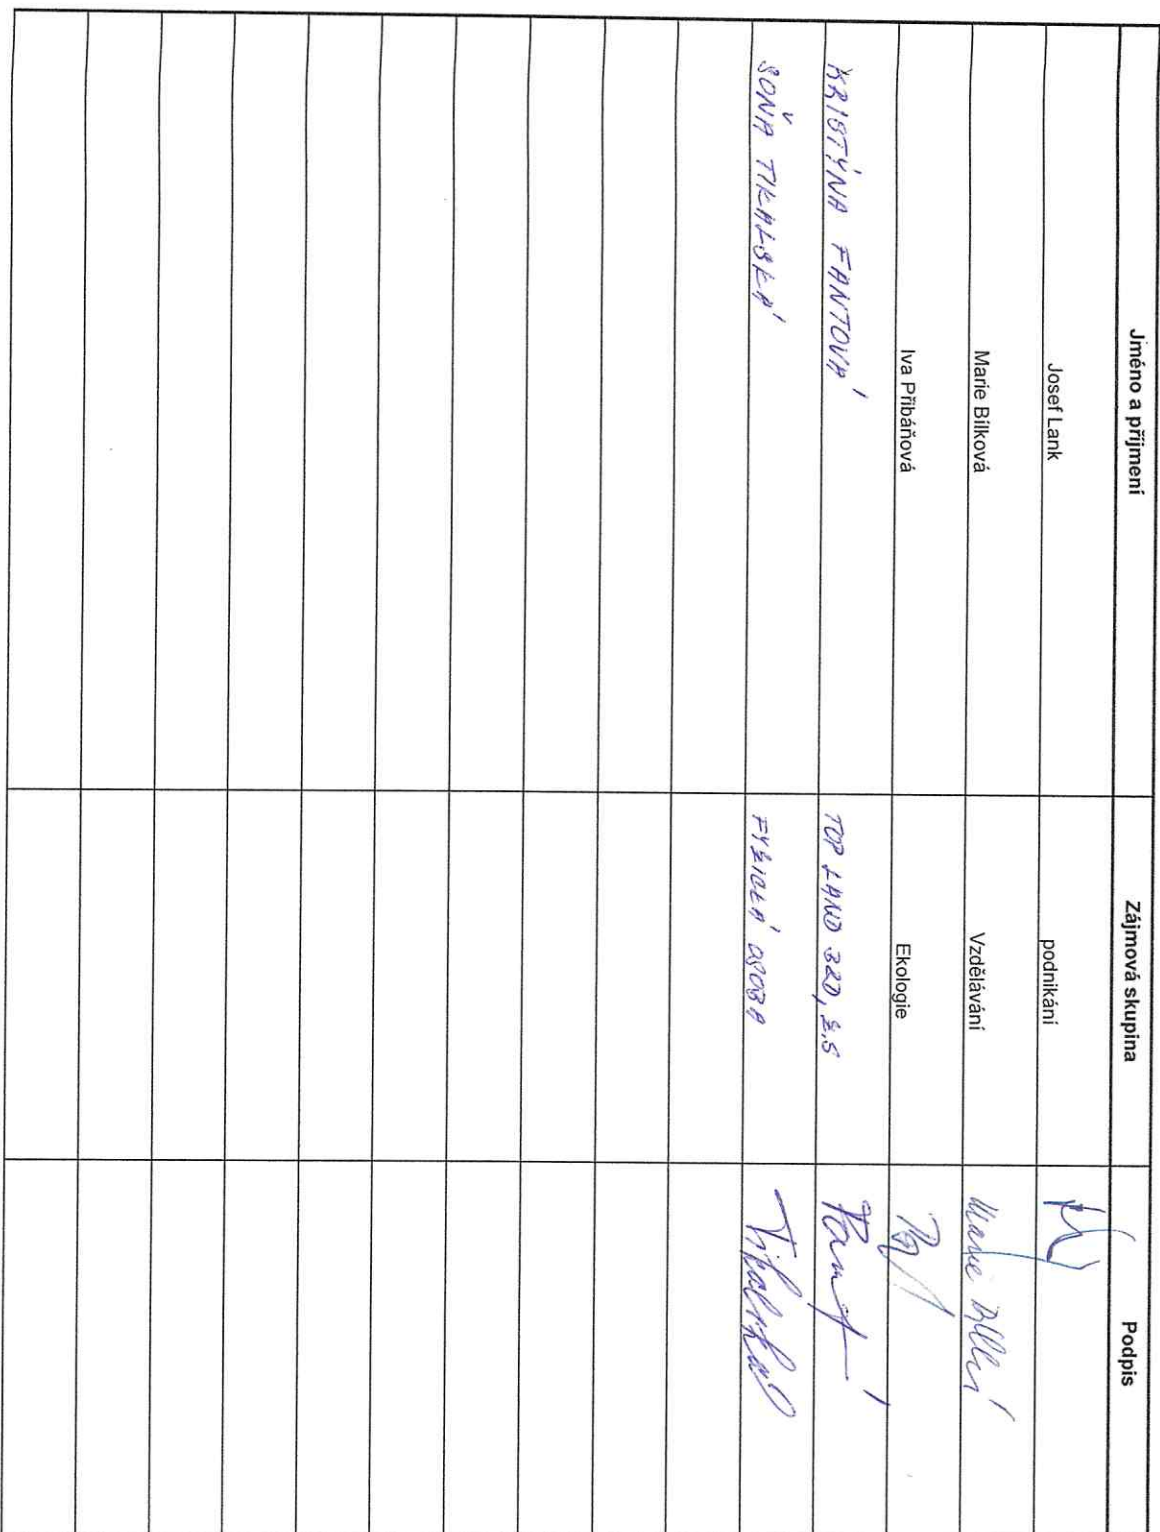 Jméno a příjmení Zájmová skupina Podpis
Josef Lank podnikání
Marie Bílková Vzdělávání Marie
Iva Přibáňová Ekologie
KRISTÝNA FANTOVÁ TOP LAND 32D, Z.S
SOŇA TIKALSKÁ FYZICKÁ OSOBA Tikalská